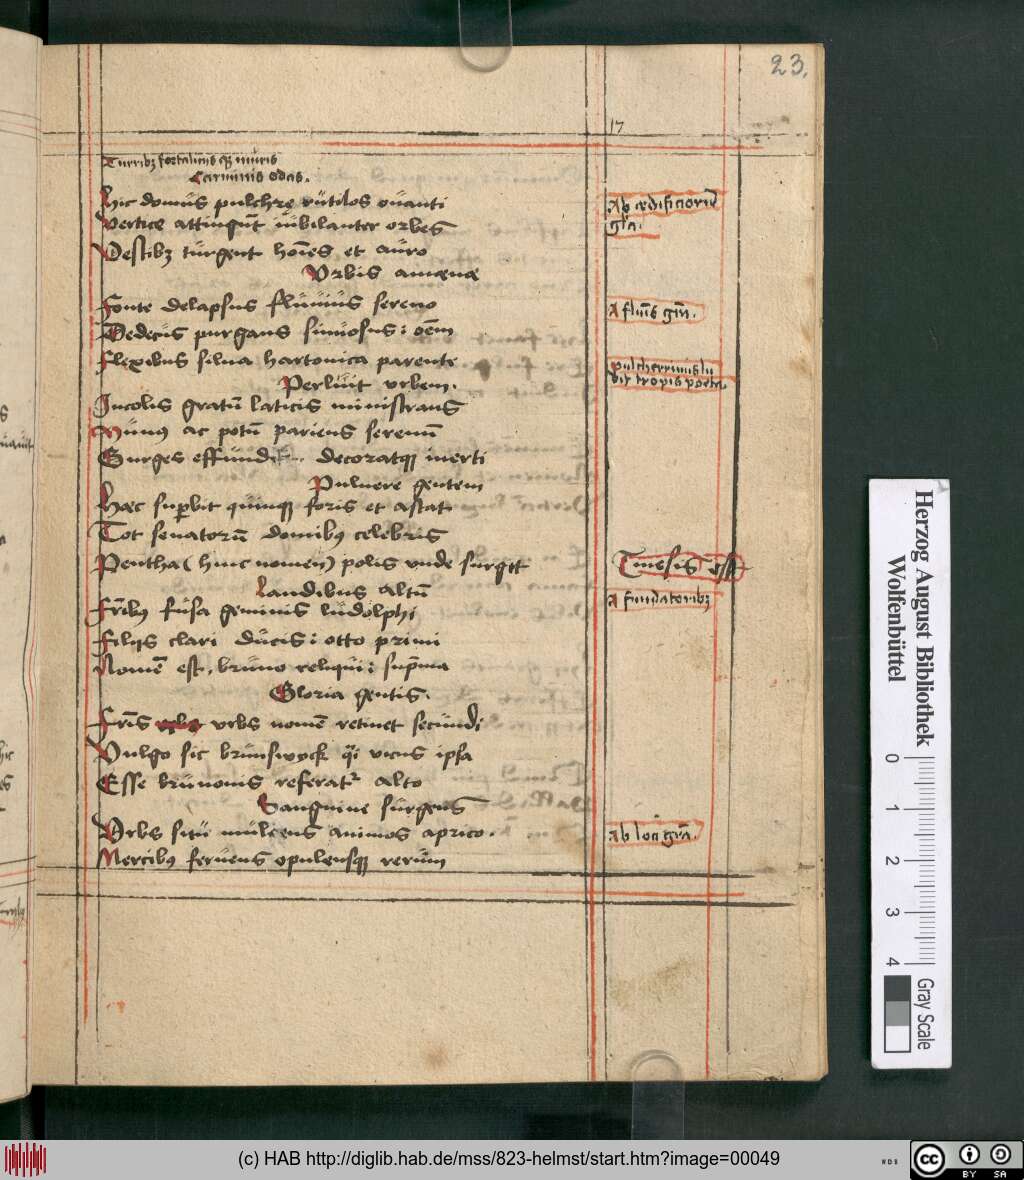 23.
17
Turribꝫ fortalitijs qꝫ muris
Carminis odas.
Hic domus pulchre rutilos ouanti
Vertice attingūt iubilanter orbes
Vestibꝫ turgent hoīes et auro
Vrbis amœnæ
Fonte delapsus fluuius sereno
Dedecus purgans sinuosus: oēm
Flexibus silua hartonica parente
Perluit vrbem.
Incolis gratū laticis ministrans
Munus ac potū pariens serenū
Gurges effundit decoratqꝫ inerti
Puluere gentem
Hæc suꝑbit quinqꝫ foris et astat
Tot senatorū domibus celebris
Pentha (hinc nomen) polis vnde surgit
Laudibus altū
Fr̄ibus fusa geminis ludolphi
Filijs clari ducis: otto primi
Nomē est, bruno reliqui: sup̄ma
Gloria gentis.
Fr̄is vrbs nomē retinet secundi
Vulgo sic brunswyck q̄i vicus ipsa
Esse brunonis referatr alto
Sanguine surgens
Vrbs situ mulcens animos aprico.
Mercibus feruens opulensqꝫ rerum
Ab ædificiorū
gīa.
A fluīs gīa.
pulcherrimis in
tropis poeta
Tmesis est
A fundatoribꝫ
Ab loci gīa.
Herzog August Bibliothek
Wolfenbüttel
0 1 2 3 4
Gray Scale
(c) HAB http://diglib.hab.de/mss/823-helmst/start.htm?image=00049
cc BY SA